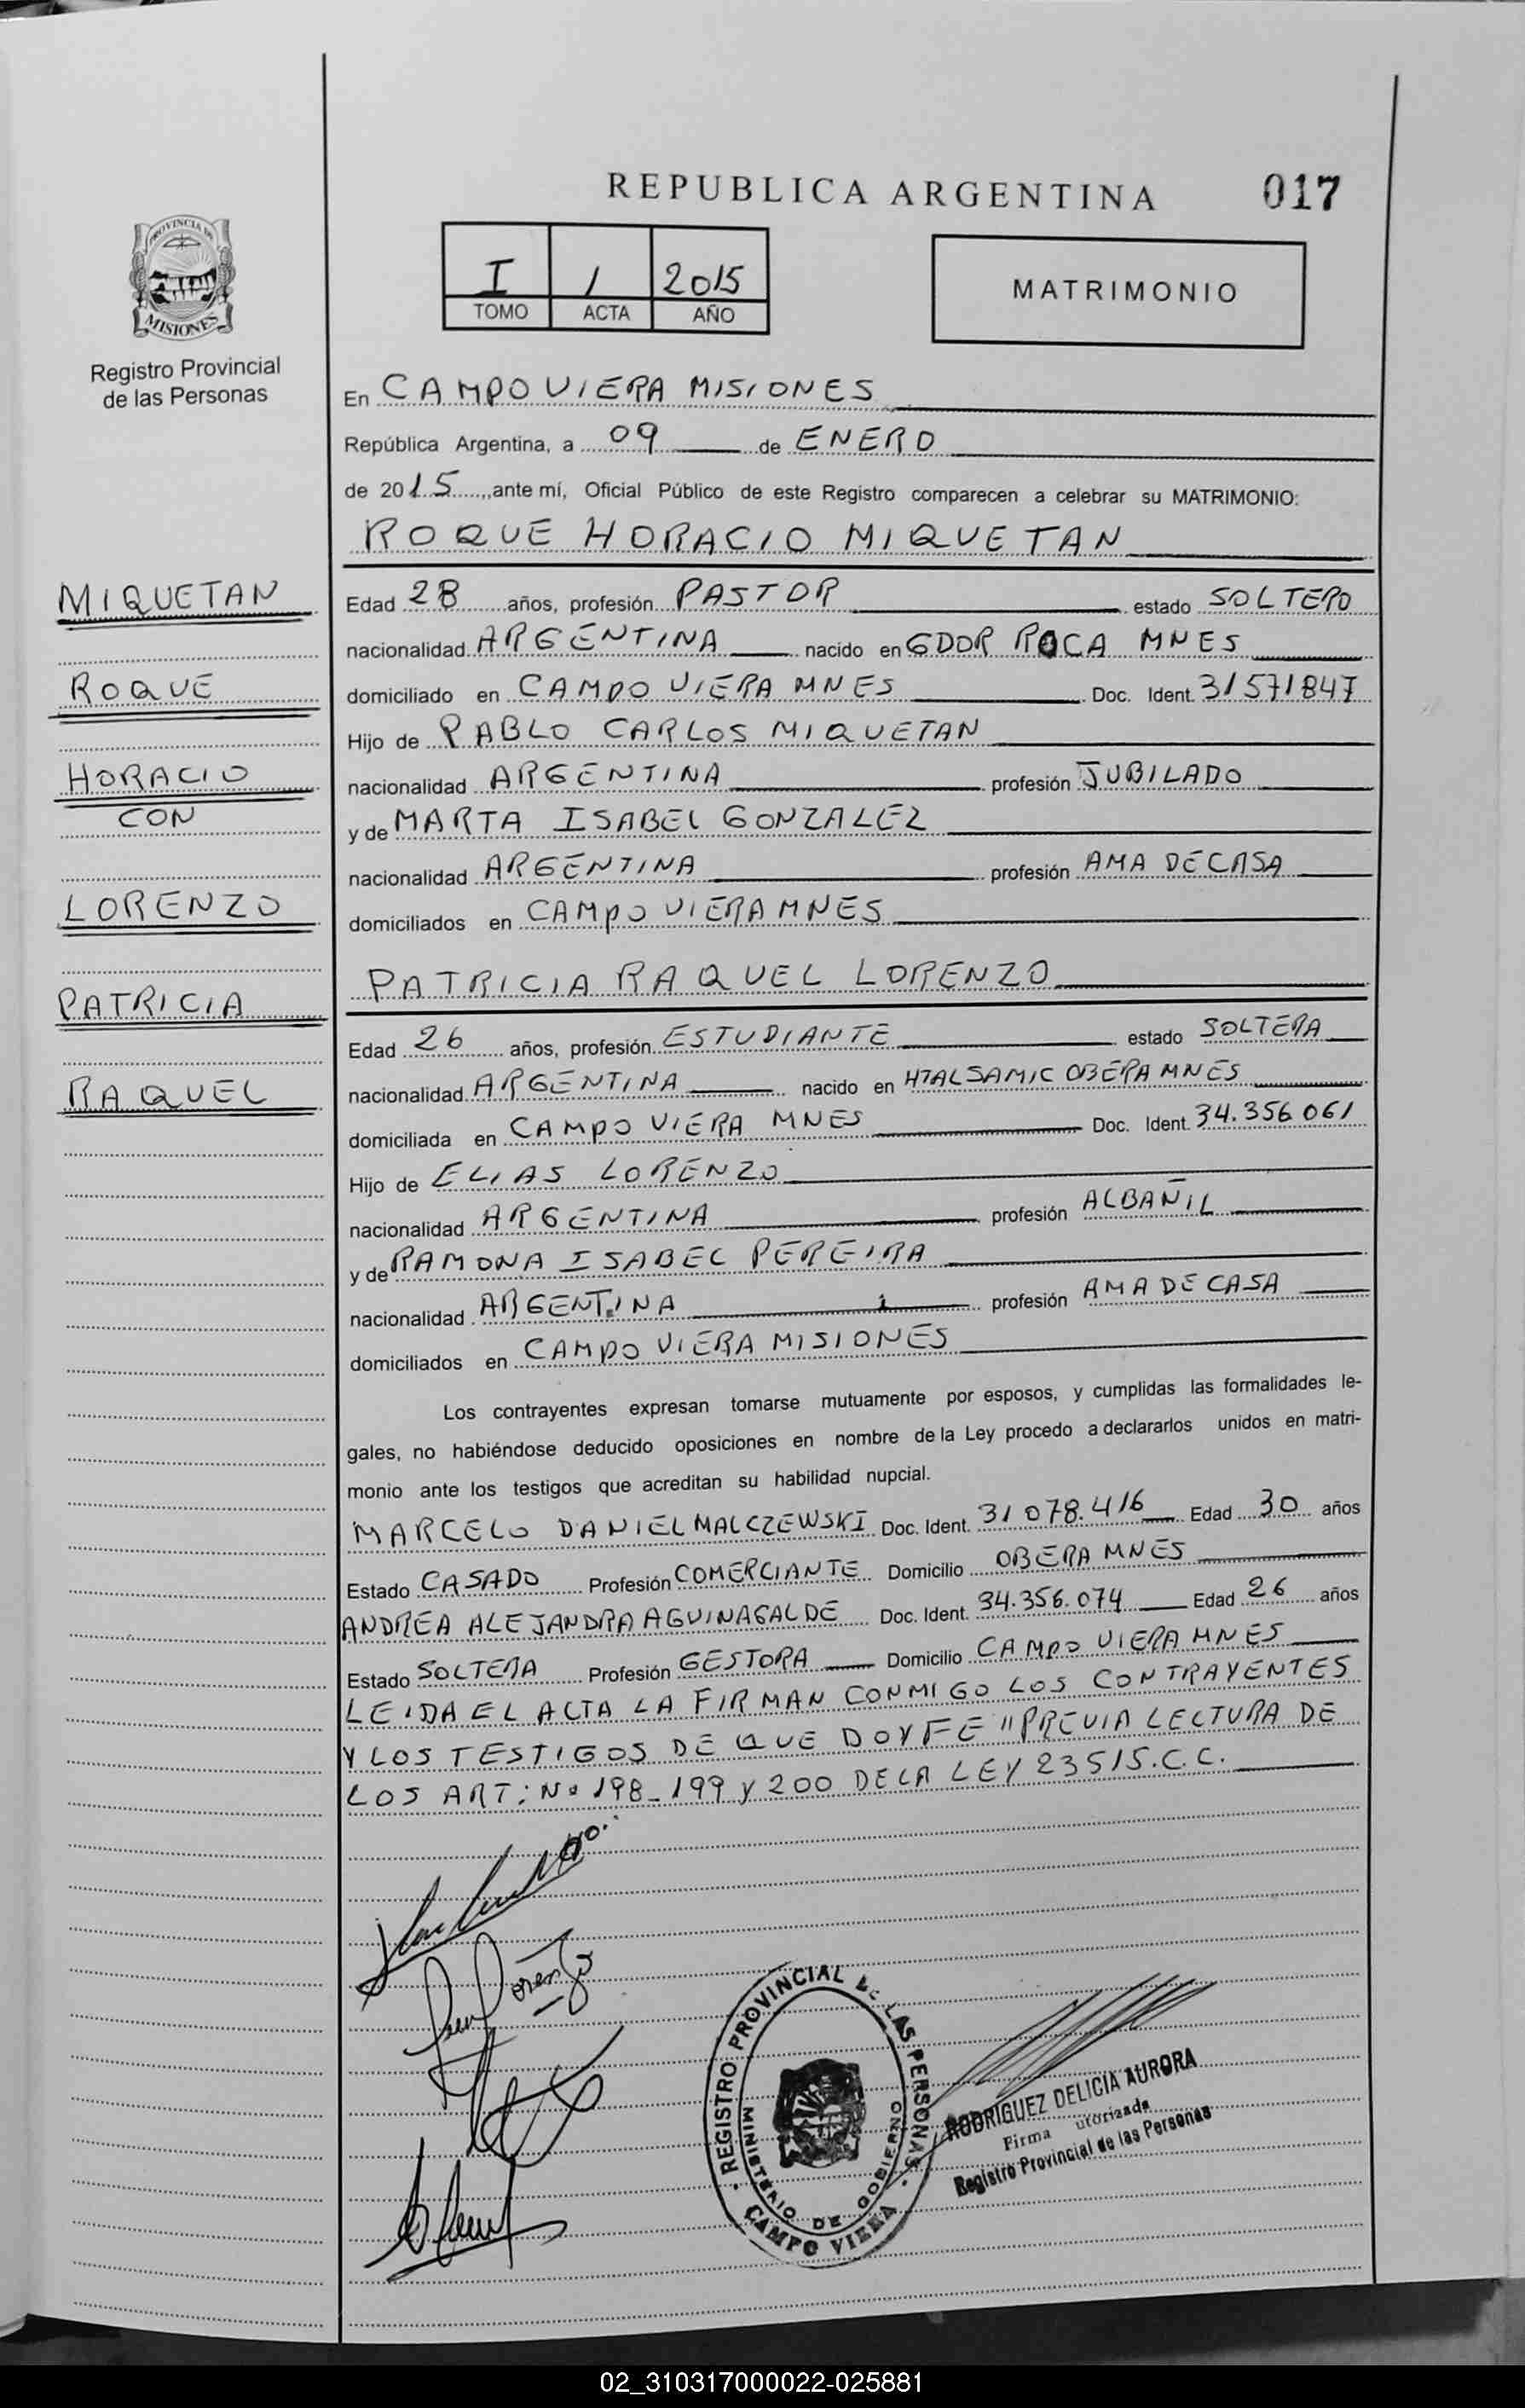 REPUBLICA ARGENTINA
017
PROVINCIA DE
MISIONES
Registro Provincial
de las Personas
I 1 2015
TOMO ACTA AÑO
MATRIMONIO
En CAMPO VIERA MISIONES
República Argentina, a 09 de ENERO
de 2015, ante mí, Oficial Público de este Registro comparecen a celebrar su MATRIMONIO:
ROQUE HORACIO MIQUETAN
MIQUETAN
ROQUE
HORACIO
CON
LORENZO
PATRICIA
RAQUEL
Edad 28 años, profesión PASTOR estado SOLTERO
nacionalidad ARGENTINA nacido en GDOR ROCA MNES
domiciliado en CAMPO VIERA MNES Doc. Ident. 31571847
Hijo de PABLO CARLOS MIQUETAN
nacionalidad ARGENTINA profesión JUBILADO
y de MARTA ISABEL GONZALEZ
nacionalidad ARGENTINA profesión AMA DE CASA
domiciliados en CAMPO VIERA MNES
PATRICIA RAQUEL LORENZO
Edad 26 años, profesión ESTUDIANTE estado SOLTERA
nacionalidad ARGENTINA nacido en HTALSAMIC OBERA MNES
domiciliada en CAMPO VIERA MNES Doc. Ident. 34.356.061
Hijo de ELIAS LORENZO
nacionalidad ARGENTINA profesión ALBAÑIL
y de RAMONA ISABEL PEREIRA
nacionalidad ARGENTINA profesión AMA DE CASA
domiciliados en CAMPO VIERA MISIONES
Los contrayentes expresan tomarse mutuamente por esposos, y cumplidas las formalidades le-
gales, no habiéndose deducido oposiciones en nombre de la Ley procedo a declararlos unidos en matri-
monio ante los testigos que acreditan su habilidad nupcial.
MARCELO DANIEL MALCZEWSKI Doc. Ident. 31 078.416 Edad 30 años
Estado CASADO Profesión COMERCIANTE Domicilio OBERA MNES
ANDREA ALEJANDRA AGUINAGALDE Doc. Ident. 34.356.074 Edad 26 años
Estado SOLTERA Profesión GESTORA Domicilio CAMPO VIERA MNES
LEIDA EL ACTA LA FIRMAN CONMIGO LOS CONTRAYENTES
Y LOS TESTIGOS DE QUE DOY FE "PREVIA LECTURA DE
LOS ART: Nº 198_199 y 200 DE LA LEY 23515.C.C.
Lorenzo
REGISTRO PROVINCIAL DE LAS PERSONAS
MINISTERIO DE GOBIERNO
CAMPO VIERA
RODRIGUEZ DELICIA AURORA
Firma utorizada
Registro Provincial de las Personas
02_310317000022-025881